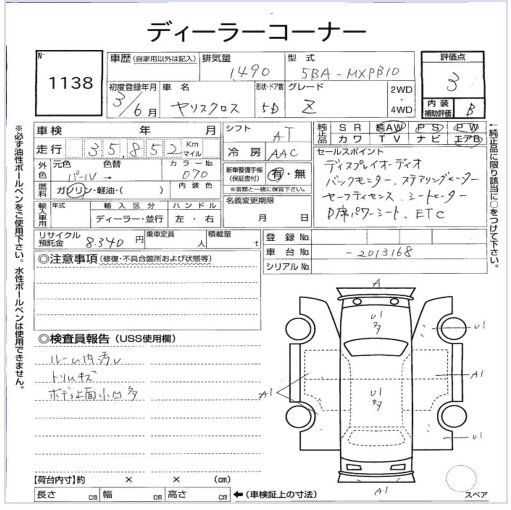 ディーラーコーナー
No
1138
車歴 (自家用以外は記入)
排気量
1490
型式
5BA-MXPB10
評価点
3
内装補助評価
B
初度登録年月
3/6月
車名
ヤリスクロス
形状・ドア数
5D
グレード
Z
2WD
・
4WD
車検 年 月
シフト
AT
純正品
SR 純AW PS PW
カワ TV ナビ エアB
走行 35852 Km
マイル
冷房
AAC
セールスポイント
ディスプレイオーディオ
バックモニター、ステアリングヒーター
セーフティセンス、シートヒーター
D席パワーシート、ETC
外色
元色 色替
パール
カラーNo.
070
新車整備手帳
(保証書付)
有・無
※書類と一緒に保管下さい。
燃料
ガソリン・軽油・( )
内装色
名義変更期限
月 日
輸入車用
年式
輸入区分
ディーラー・並行
ハンドル
左・右
リサイクル預託金
8,340 円
乗車定員
人
積載量
t
登録No
車台No
-2013168
シリアルNo
◎注意事項 (修復・不具合箇所および状態等)
◎検査員報告 (USS使用欄)
ルーム内汚レ
トリムキズ
ボディ上面小凹多
A
U1
多
U1
A1
U1
多
A1
U1
A1
スペア
【荷台内寸】約 × × (cm)
長さ cm 幅 cm 高さ cm ←(車検証上の寸法)
※必ず油性ボールペンをご使用下さい。水性ボールペンは使用できません。
↑純正品に限り該当に○をつけて下さい。